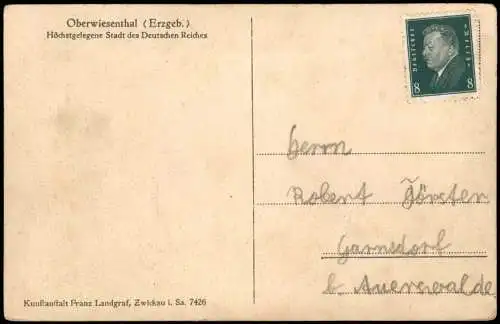 Oberwiesenthal (Erzgeb.)
Höchstgelegene Stadt des Deutschen Reiches
Deutsches Reich
8 8
Herrn
Robert Förster
Garnsdorf
b Auerswalde
Kunstanstalt Franz Landgraf, Zwickau i. Sa. 7426